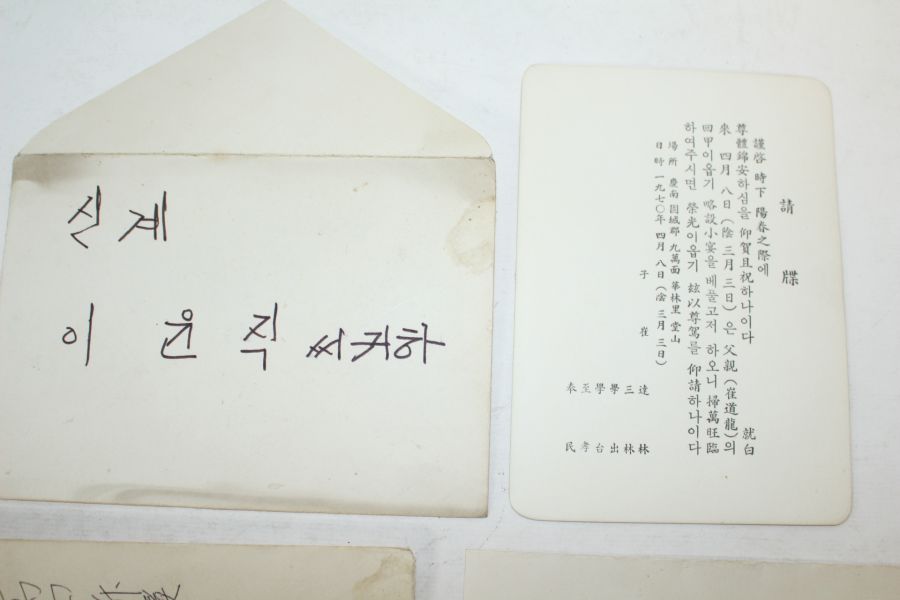 신계
이 윤 직 씨 귀하
請 牒
謹啓 時下 陽春之際에
尊體錦安하심을 仰賀且祝하나이다 就白
來 四月 八日(陰 三月 三日)은 父親(崔道龍)의
回甲이옵기 略設小宴을 베풀고저 하오니 掃萬旺臨
하여주시면 榮光이옵기 玆以尊駕를 仰請하나이다
場所 慶南 固城郡 九萬面 華林里 堂山
日時 一九七〇年 四月 八日(陰 三月 三日)
子 崔
達 林
三 林
學 出
學 台
至 孝
泰 民